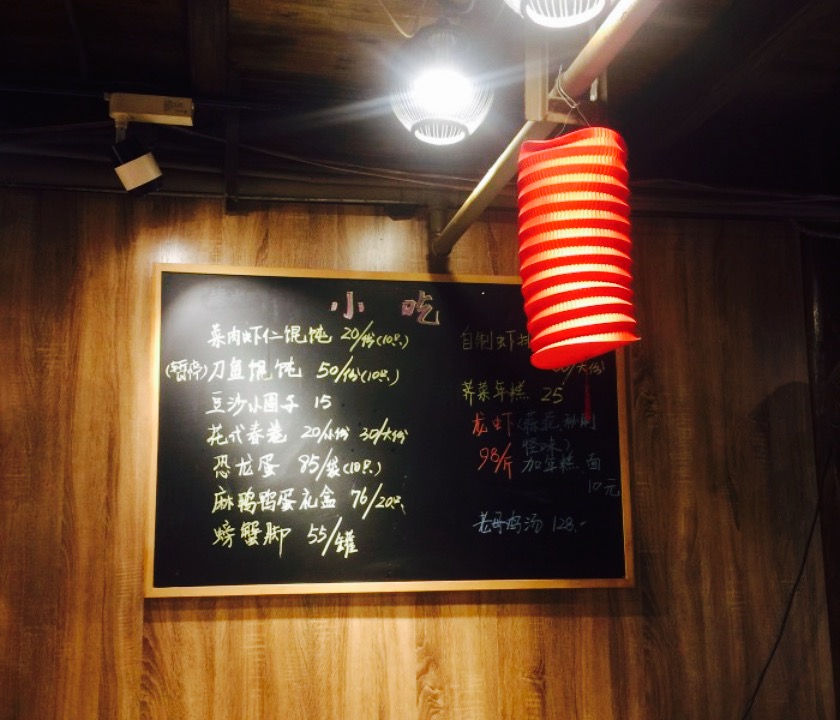 小吃
菜肉虾仁馄饨 20/份(10只)
(暂停)刀鱼馄饨 50/份(10只)
豆沙小圆子 15
花式春卷 20/小份 30/大份
恐龙蛋 85/袋(10只)
麻鸭鸭蛋礼盒 76/20只
螃蟹脚 55/罐
自制虾
/大份)
荠菜年糕 25
龙虾(蒜蓉
怪味)
98/斤 加年糕、面
10元
老母鸡汤 128.-